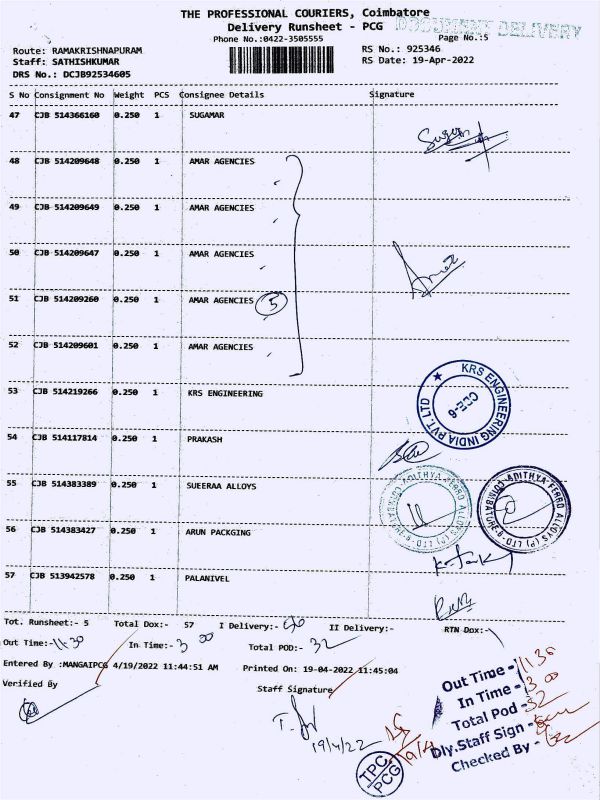 THE PROFESSIONAL COURIERS, Coimbatore
Delivery Runsheet - PCG
DOCUMENT DELIVERY
Phone No.:0422-3505555
Page No.:5
Route: RAMAKRISHNAPURAM
RS No.: 925346
Staff: SATHISHKUMAR
RS Date: 19-Apr-2022
DRS No.: DCJB92534605
S No Consignment No Weight PCS Consignee Details Signature
47 CJB 514366160 0.250 1 SUGAMAR
48 CJB 514209648 0.250 1 AMAR AGENCIES
49 CJB 514209649 0.250 1 AMAR AGENCIES
50 CJB 514209647 0.250 1 AMAR AGENCIES
51 CJB 514209260 0.250 1 AMAR AGENCIES 5
52 CJB 514209601 0.250 1 AMAR AGENCIES
53 CJB 514219266 0.250 1 KRS ENGINEERING
KRS ENGINEERING INDIA PVT. LTD
CBE-6
54 CJB 514117814 0.250 1 PRAKASH
55 CJB 514383389 0.250 1 SUEERAA ALLOYS
ADITHYA FERRO ALLOYS (P) LTD
COIMBATORE
ADITHYA FERRO ALLOYS (P) LTD
COIMBATORE
56 CJB 514383427 0.250 1 ARUN PACKGING
57 CJB 513942578 0.250 1 PALANIVEL
Tot. Runsheet:- 5 Total Dox:- 57 I Delivery:- II Delivery:- RTN Dox:-
Out Time:- 11.30 In Time:- 3 00 Total POD:- 32
Entered By :MANGAIPCG 4/19/2022 11:44:51 AM Printed On: 19-04-2022 11:45:04
Verified By
Staff Signature
19/4/22
Out Time - 11 30
In Time - 3 00
Total Pod - 32
Dly.Staff Sign -
Checked By -
TPC
PCG
19/4